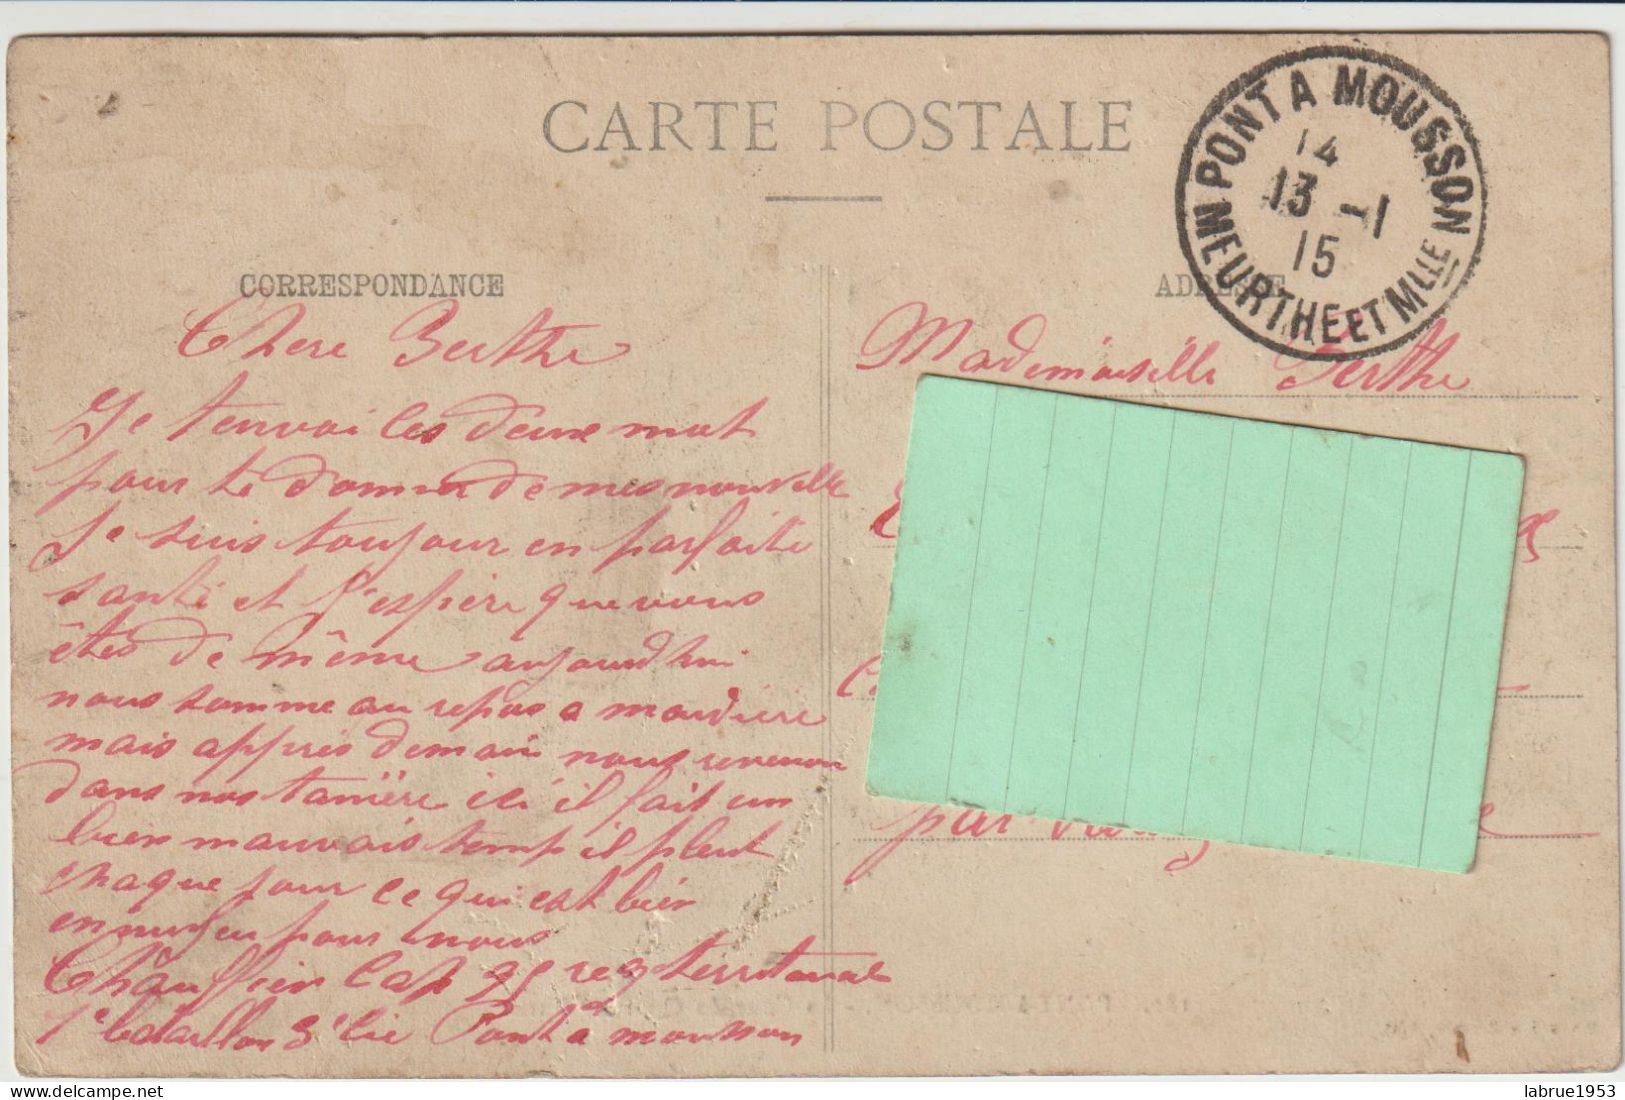 CARTE POSTALE
PONT A MOUSSON
14
13 -1
15
MEURTHE ET MLLE
CORRESPONDANCE
Chere Berthe
Je tenvoi les deux mot
pour te donner de mes nouvelle
Je suis toujour en parfaite
santé et J'espère que vous
êtes de même aujourdhui
nous somme au repos a maidière
mais apprès demain nous revenon
dans nos tanière ici il fait un
bien mauvais temp il pleut
chaque jour ce qui est bien
ennuyeu pour nous
Cap reg territorial
1e bataillon Cie Pont a mousson
ADRESSE
Mademoiselle Berthe
par
labrue1953